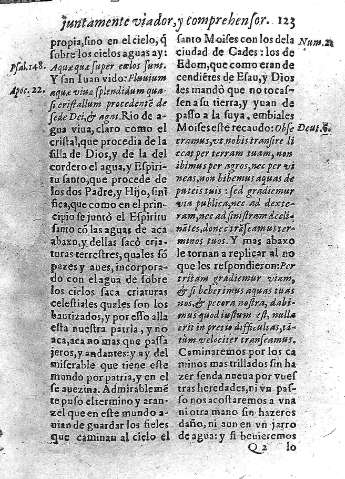 juntamente viador, y comprehensor. 123
propia, sino en el cielo, q̃
sobre los cielos aguas ay:
Psal. 148. Aquæ quæ super cælos sunt.
Y san Iuan vido: Fluuium
Apoc. 22. aquæ viuæ splendidum qua-
si cristallum procedentẽ de
sede Dei, & agni. Rio de a-
gua viua, claro como el
cristal, que procedia de la
silla de Dios, y de la del
cordero el agua, y Espiri-
tu santo, que procede de
los dos Padre, y Hijo, sini-
fica, que como en el prin-
cipio se juntó el Espiritu
santo cõ las aguas de aca
abaxo, y dellas sacò cria-
turas terrestres, quales sõ
pazes y aues, incorpora-
do con el agua de sobre
los cielos saca criaturas
celestiales quales son los
bautizados, y por esso alla
esta nuestra patria, y no
aca, aca no mas que passa
jeros, y andantes: y ay del
miserable que tiene este
mundo por patria, y en el
se auezina. Admirablemẽ
te puso el termino y aran-
zel que en este mundo a-
uian de guardar los fieles
que caminan al cielo el
santo Moises con los de la
ciudad de Cades: los de Num. 21
Edom, que como eran de
cendiẽtes de Esau, y Dios
les mandò que no tocas-
sen a su tierra, y yuan de
passo a la suya, embiales
Moises este recaudo: Obse Deut. 6.
cramus, vt nobis transire li
ceas per terram tuam, non
ibimus per agros, nec per vi
neas, non bibemus aquas de
puteis tuis: sed gradiemur
via publica, nec ad dexte-
ram, nec ad sinistram decli-
nates, donec trãseamus ter-
minos tuos. Y mas abaxo
le tornan a replicar al no
que los respondieron: Per
tritam gradiemur viam,
& si biberimus aquas tuas
nos, & pecora nostra, dabi-
mus quod iustum est, nulla
erit in pretio difficultas, tã-
tum velociter transeamus.
Caminaremos por los ca
minos mas trillados sin ha
zer senda nueua por vues
tras heredades, ni vn pas-
so nos acostaremos a vna
ni otra mano sin hazeros
daño, ni aun en vn jarro
de agua: y si beuieremos
Q 2 lo